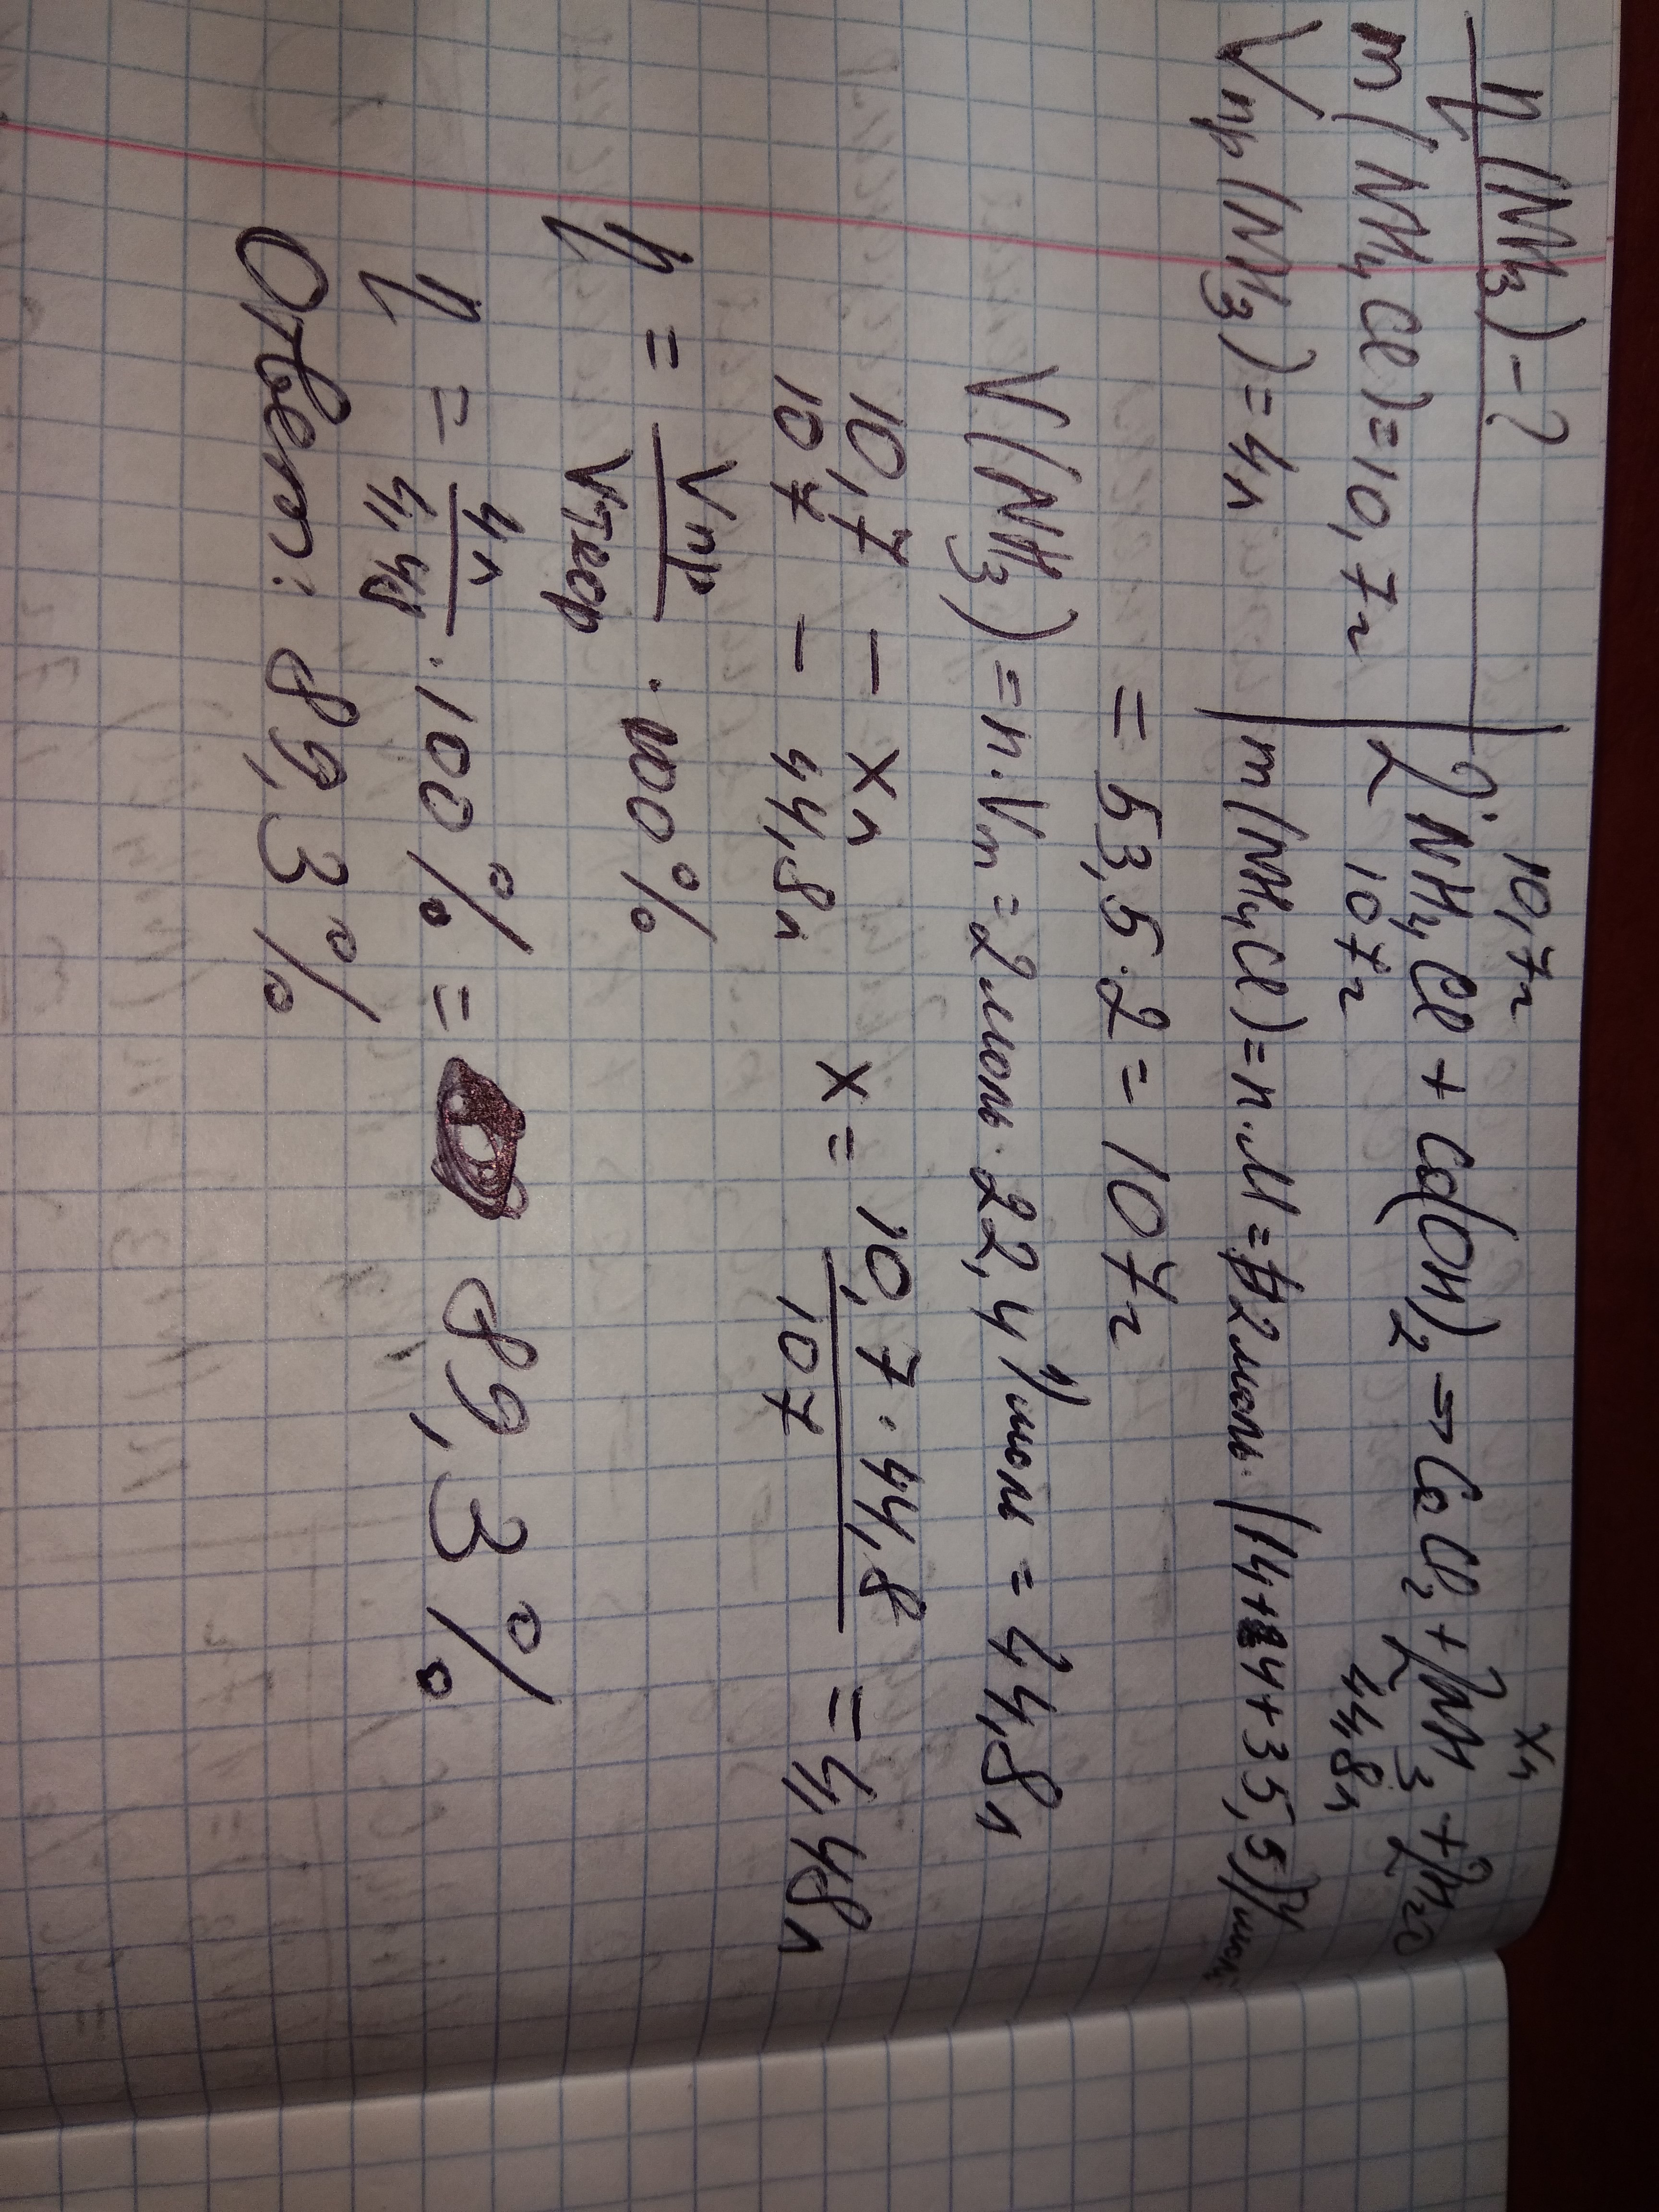 η(NH₃) - ?
m(NH₄Cl) = 10,7г
Vпр(NH₃) = 4л
10,7г xл
2NH₄Cl + Ca(OH)₂ => CaCl₂ + 2NH₃ + 2H₂O
107г 44,8л
m(NH₄Cl) = n·M = 2моль·(14+4+35,5)г/моль
= 53,5·2 = 107г
V(NH₃) = n·Vm = 2моль·22,4 л/моль = 44,8л
10,7 – xл
107 – 44,8л
x = 10,7·44,8 / 107 = 4,48л
η = Vпр / Vтеор · 100%
η = 4л / 4,48 · 100% = 89,3%
Ответ: 89,3%